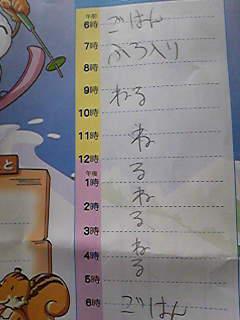 午前
6時 ごはん
7時 ふろ入り
8時
9時 ねる
10時
11時 ね
12時 る
午後
1時 ね
2時 る
3時 ね
4時 る
5時
6時 ごはん
と